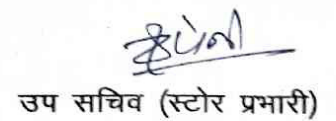 उप सचिव (स्टोर प्रभारी)